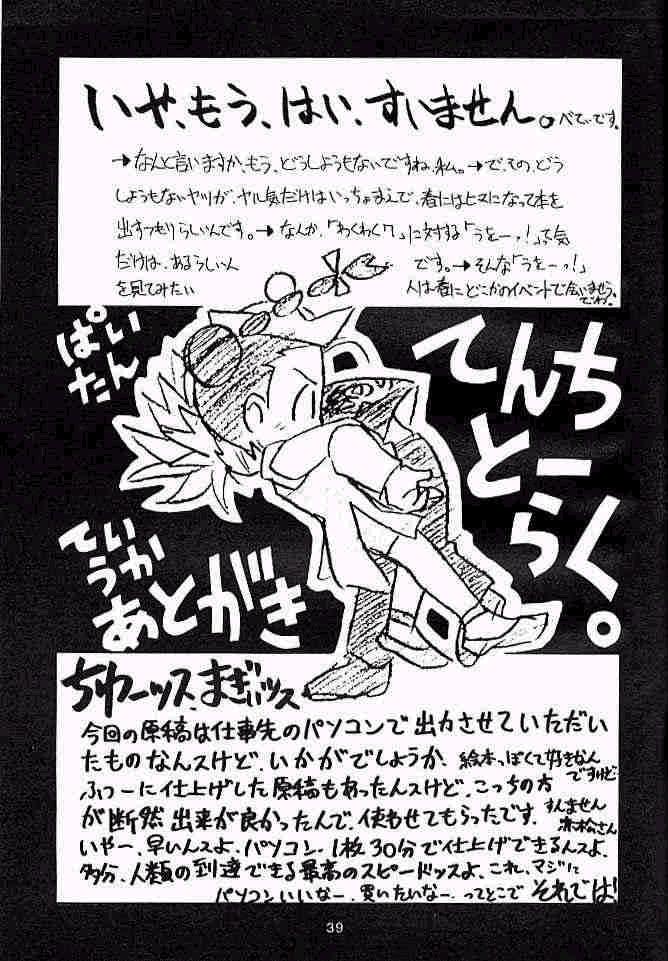 いや、もう、はい、すいません。べてぃです。
→なんと言いますか、もう、どうしようもないですね、私。→で、その、どう
しようもないヤツが、ヤル気だけはいっちょまえで、春にはヒマになって本を
出すつもりらしいんです。→なんか、「わくわく7」に対する「うをーっ!」って気
だけは、あるらしいん です。→そんな「うをーっ!」
を見てみたい 人は春にどこかのイベントで会いませう。
でわ。
ぱい
たん
てんち
とーく
らく。
ていうか
あとがき
ちゅーッス、まぎぃッス
今回の原稿は仕事先のパソコンで出力させていただい
たものなんスけど、いかがでしょうか、絵本っぽくて好きなん
ですけど
ふつーに仕上げした原稿もあったんスけど、こっちの方
が断然出来が良かったんで、使わせてもらったです。すんません
赤松さん
いやー、早いんスよ、パソコン。1枚30分で仕上げできるんスよ、
多分、人類の到達できる最高のスピードッスよ、これ、マジに
パソコンいいなー、買いたいなー、ってとこで それでは!
39